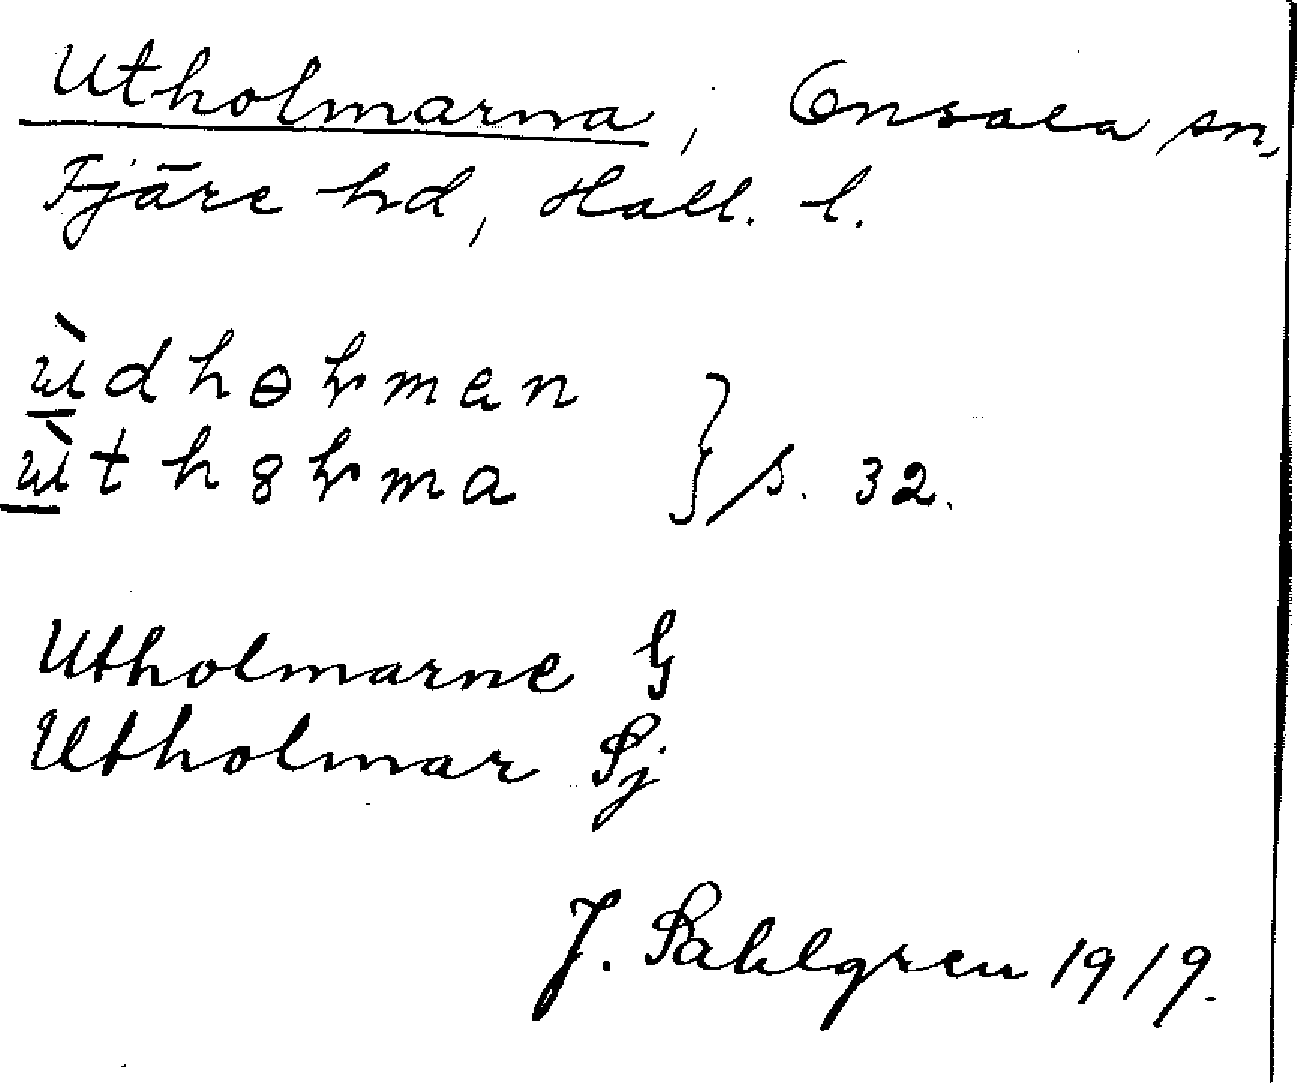 Utholmarna, Onsala sn,
Fjäre hd, Hall. l.
s. 32.
Utholmarne G
Utholmar Sj
J. Sahlgren 1919.